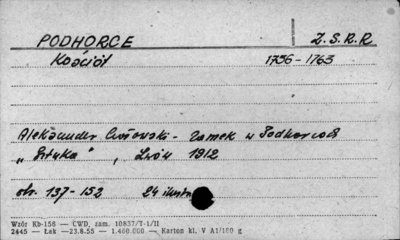 PODHORCE Z.S.R.R
Kościół 1756-1763
Aleksander Czołowski - Zamek w Podhorcach
„Sztuka", Lwów 1912
str. 137-152 24 ilustr
Wzór Kb-156 — CWD, zam. 10837/T-1/II
2445 — Łak —23.8.55 — 1.400.000 — Karton kl. V A1/100 g